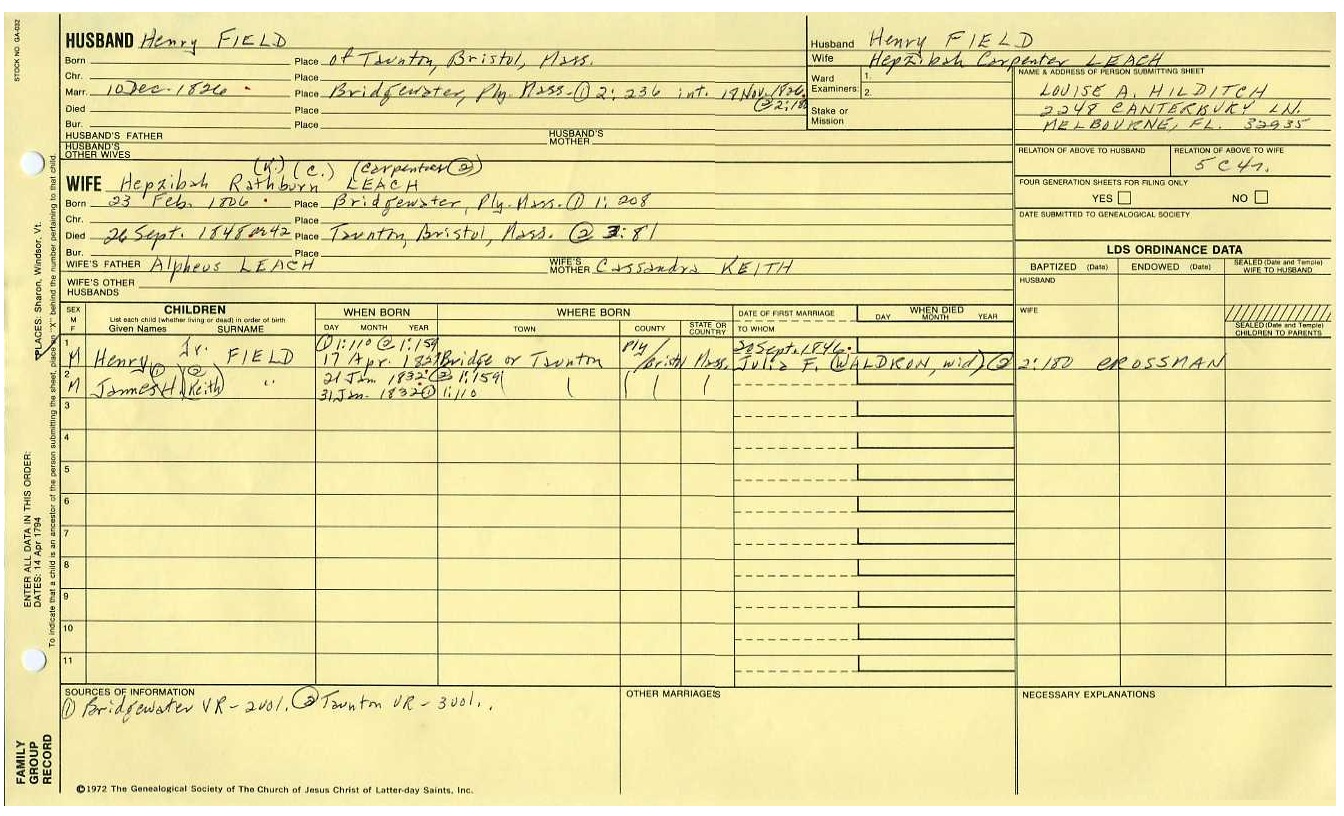 STOCK NO. GA-032
HUSBAND Henry FIELD
Born Place of Taunton, Bristol, Mass.
Chr. Place
Marr. 10 Dec. 1826 Place Bridgewater, Ply. Mass. ① 2: 236 int. 19 Nov. 1826.
② 2:180
Died Place
Bur. Place
HUSBAND'S FATHER HUSBAND'S MOTHER
HUSBAND'S OTHER WIVES
Husband Henry FIELD
Wife Hepzibah Carpenter LEACH
Ward Examiners: 1.
2.
Stake or Mission
NAME & ADDRESS OF PERSON SUBMITTING SHEET
LOUISE A. HILDITCH
2248 CANTERBURY LN.
MELBOURNE, FL. 32935
RELATION OF ABOVE TO HUSBAND RELATION OF ABOVE TO WIFE
5C4r.
FOUR GENERATION SHEETS FOR FILING ONLY
YES NO
DATE SUBMITTED TO GENEALOGICAL SOCIETY
(K.) (C.) (Carpenter ②)
WIFE Hepzibah Rathburn LEACH
Born 23 Feb. 1806 Place Bridgewater, Ply. Mass. ① 1: 208
Chr. Place
Died 26 Sept. 1848 or 42 Place Taunton, Bristol, Mass. ② 3:81
Bur. Place
WIFE'S FATHER Alpheus LEACH WIFE'S MOTHER Cassandra KEITH
WIFE'S OTHER HUSBANDS
LDS ORDINANCE DATA
BAPTIZED (Date) ENDOWED (Date) SEALED (Date and Temple) WIFE TO HUSBAND
HUSBAND
WIFE
SEALED (Date and Temple) CHILDREN TO PARENTS
SEX M F
CHILDREN
List each child (whether living or dead) in order of birth
Given Names SURNAME
WHEN BORN
DAY MONTH YEAR
WHERE BORN
TOWN COUNTY STATE OR COUNTRY
DATE OF FIRST MARRIAGE
TO WHOM
WHEN DIED
DAY MONTH YEAR
1 ① 1:110 ② 1:159 Ply/ 20 Sept. 1846.
M Henry, Jr. FIELD 17 Apr. 1827 Bridge or Taunton Bristl Mass. Julia F. (WALDRON, wid) ② 2:180 CROSSMAN
2 ① ② 21 Jan. 1832 ② 1:159
M James H. (Keith) " 31 Jan. 1832 ① 1:110
3
4
5
6
7
8
9
10
11
SOURCES OF INFORMATION
① Bridgewater VR - 2 vol. ② Taunton VR - 3 vol.
OTHER MARRIAGES
NECESSARY EXPLANATIONS
©1972 The Genealogical Society of The Church of Jesus Christ of Latter-day Saints, Inc.
FAMILY GROUP RECORD
ENTER ALL DATA IN THIS ORDER:
DATES: 14 Apr 1794
PLACES: Sharon, Windsor, Vt.
To indicate that a child is an ancestor of the person submitting the sheet, place an "X" behind the number pertaining to that child.